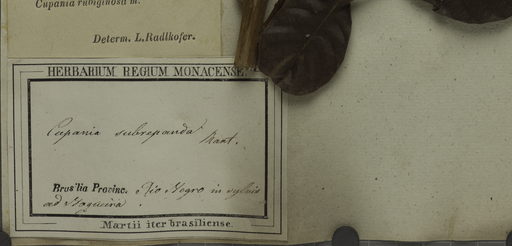 Cupania rubiginosa m.
Determ. L. Radlkofer.
HERBARIUM REGIUM MONACENSE
Cupania subrepanda Mart.
Brasilia Provinc. Rio Negro in sylvis
ad
Martii iter brasiliense.